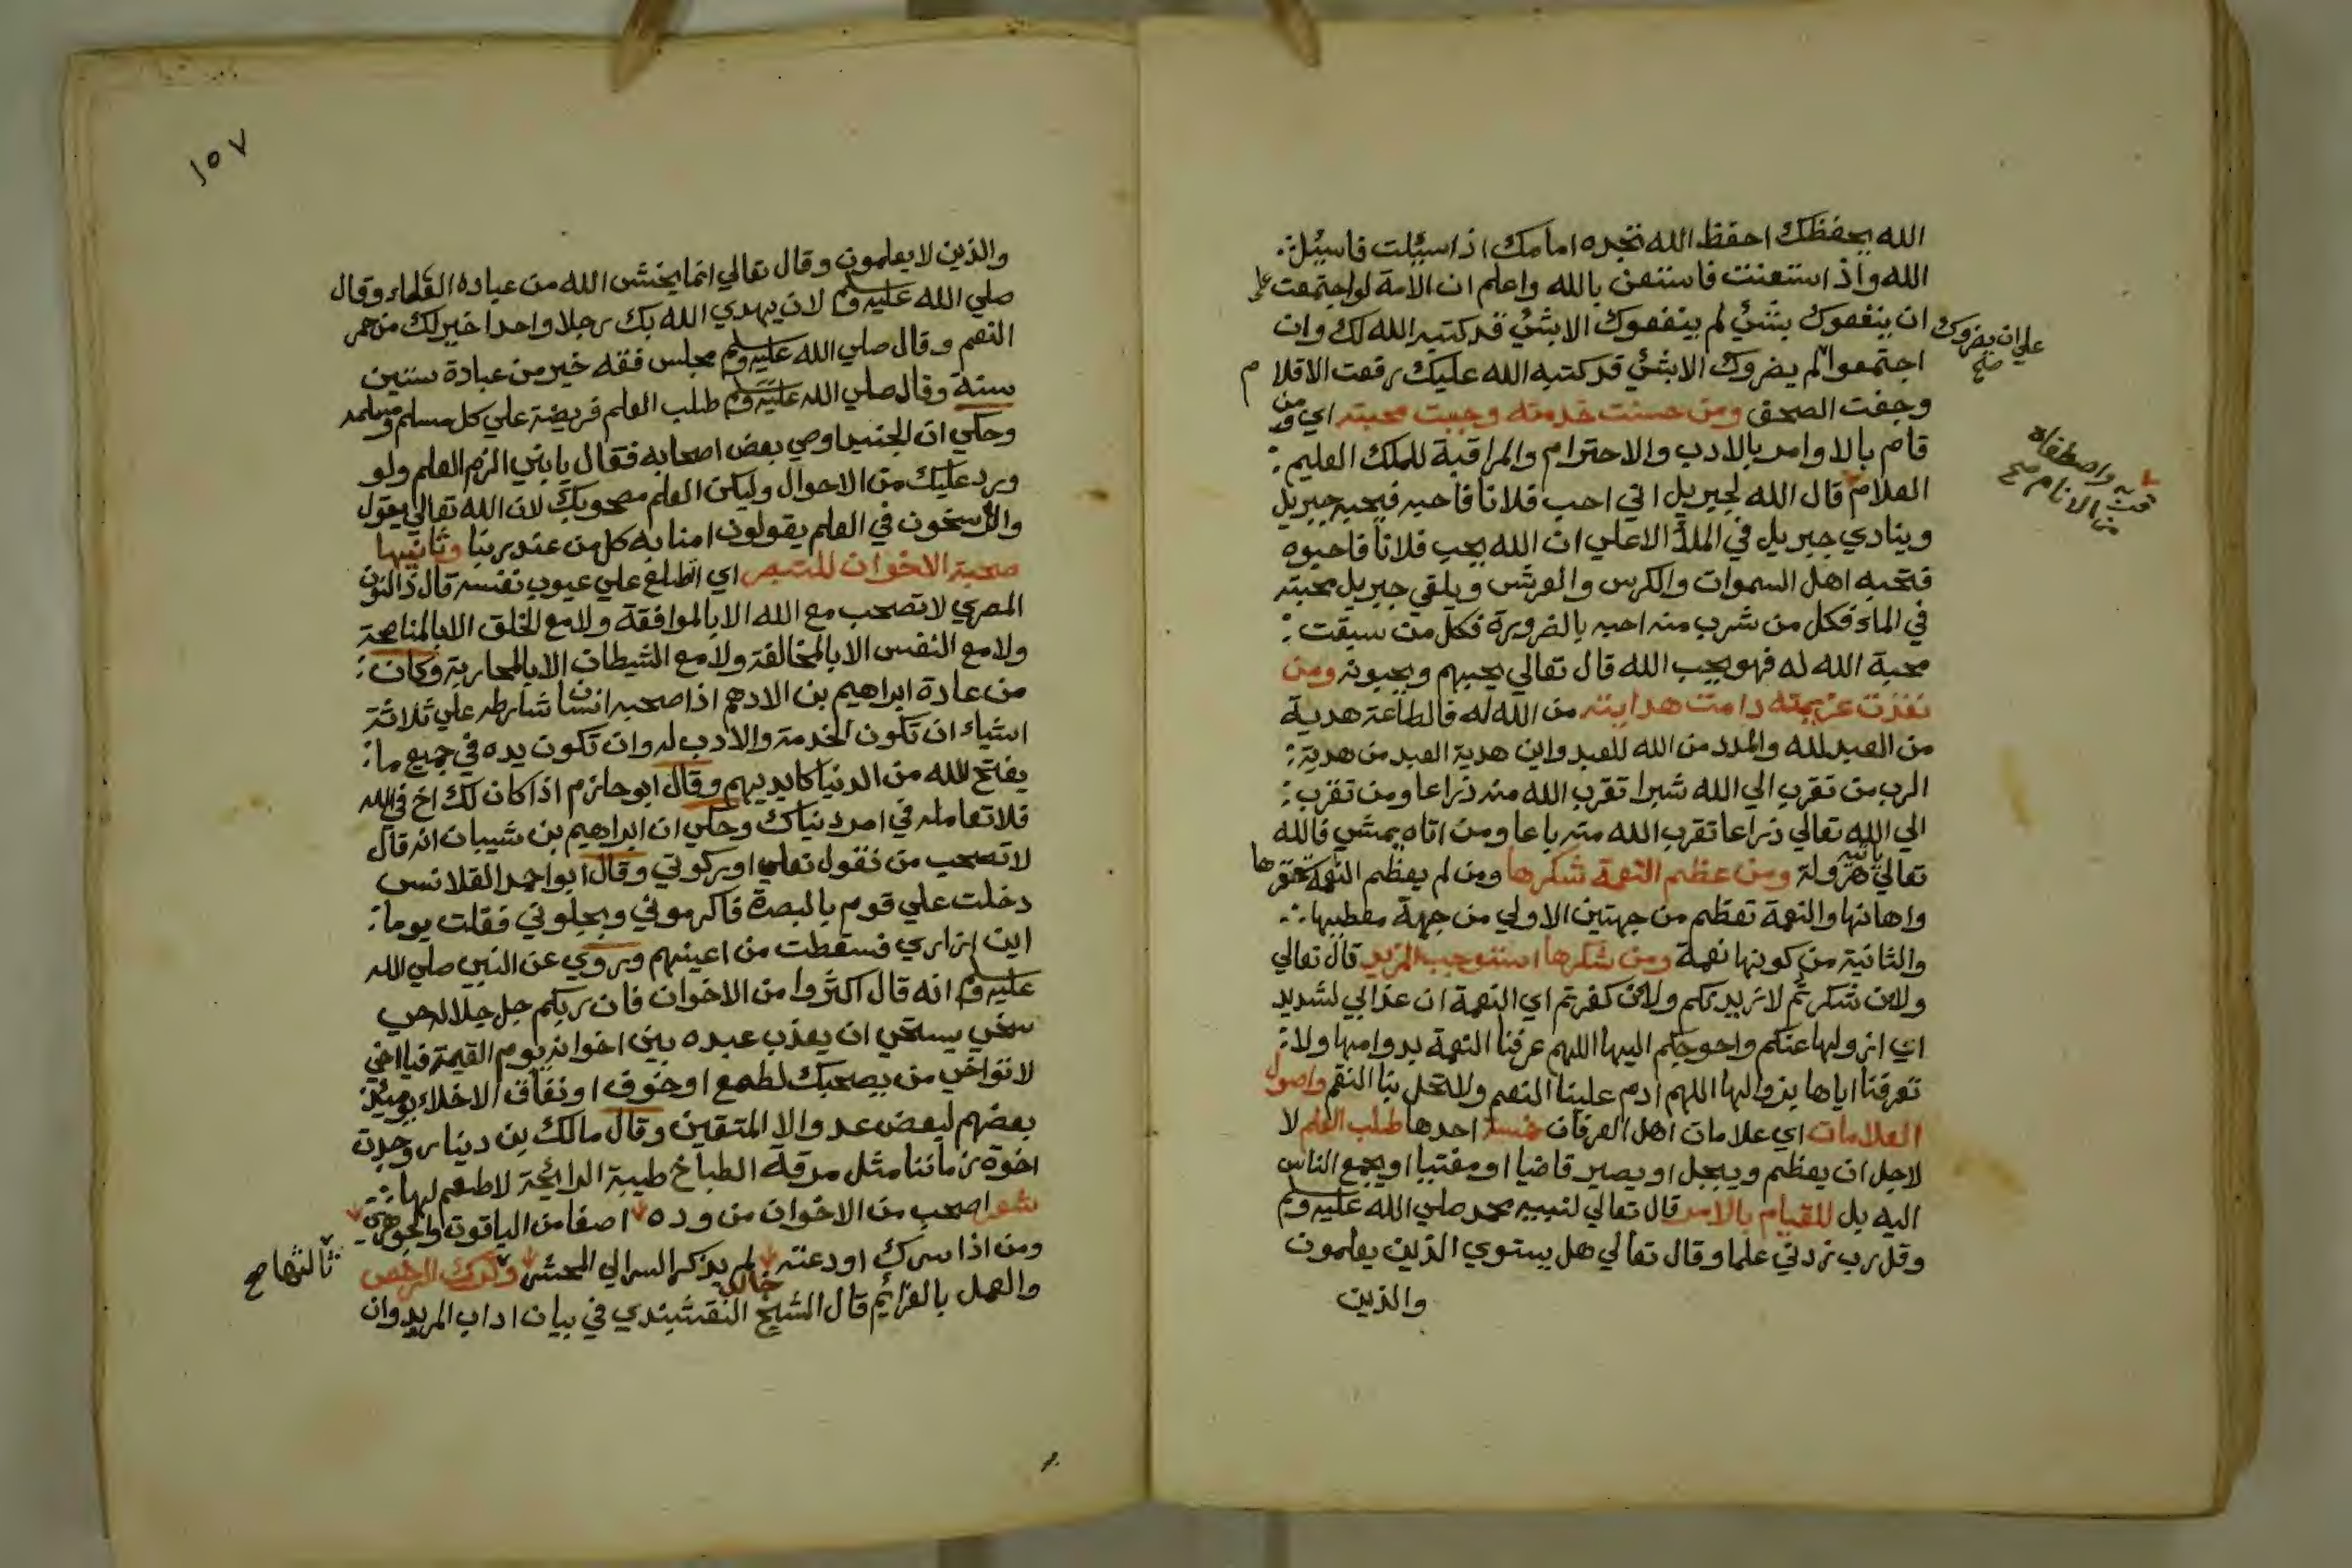 الله يحفظك احفظ الله تجده امامك اذا سئلت فاسئل
الله واذا استعنت فاستعن بالله واعلم ان الامة لو اجتمعت علي
ان ينفعوك بشئ لم ينفعوك الا بشئ قد كتبه الله لك وان
اجتمعوا لم يضروك الا بشئ قد كتبه الله عليك رفعت الاقلام
علي ان يضروك صح
وجفت الصحف ومن حسنت خدمته وجبت محبته اي ومن
قام بالاوامر بالادب والاحترام والمراقبة للملك العليم
العلام قال الله لجبريل اني احب فلانا فاحبه فيحبه جبريل
قربه واصطفاه من الانام صح
وينادي جبريل في الملأ الاعلي ان الله يحب فلانا فاحبوه
فتحبه اهل السموات والكرسي والعرش ويلقي جبريل محبته
في الماء فكل من شرب منه احبه بالضرورة فكل من سبقت
محبة الله له فهو يحب الله قال تعالي يحبهم ويحبونه ومن
نفذت عزيمته دامت هدايته من الله له فالطاعة هدية
من العبد لله والمدد من الله للعبد واين هدية العبد من هدية
الرب من تقرب الي الله شبرا تقرب الله منه ذراعا ومن تقرب
الي الله تعالي ذراعا تقرب الله منه باعا ومن اتاه يمشي فالله
تعالي ياتيه هرولة ومن عظم النعمة شكرها ومن لم يعظم النعمة حقرها
واهانها والنعمة تعظم من جهتين الاولي من جهة معطيها
والثانية من كونها نعمة ومن شكرها استوجب المزيد قال تعالي
ولاين شكرتم لازيدنكم ولاين كفرتم اي النعمة ان عذابي لشديد
اي ازولها عنكم واحوجكم اليها اللهم عرفنا النعمة بدوامها ولا
تعرفنا اياها بزوالها اللهم ادم علينا النعم ولا تحل بنا النقم واصول
العلامات اي علامات اهل العرفان خمسة احدها طلب العلم لا
لاجل ان يعظم ويبجل او يصير قاضيا او مفتيا او يجمع الناس
اليه بل للقيام بالامر قال تعالي لنبيه محمد صلي الله عليه وسلم
وقل رب زدني علما وقال تعالي هل يستوي الذين يعلمون
والذين
١٥٧
والذين لا يعلمون وقال تعالي انما يخشي الله من عباده العلماء وقال
صلي الله عليه وسلم لان يهدي الله بك رجلا واحدا خير لك من حمر
النعم وقال صلي الله عليه وسلم مجلس فقه خير من عبادة ستين
سنة وقال صلي الله عليه وسلم طلب العلم فريضة علي كل مسلم ومسلمه
وحكي ان الجنيد اوصي بعض اصحابه فقال يا بني الزم العلم ولو
ورد عليك من الاحوال وليكن العلم مصحوبك لان الله تعالي يقول
والراسخون في العلم يقولون امنا به كل من عند ربنا وثانيها
صحبة الاخوان للتبصر اي اطلع علي عيوب نفسه قال ذا النون
المصري لا تصحب مع الله الا بالموافقة ولا مع الخلق الا بالمناصحة
ولا مع النفس الا بالمخالفة ولا مع الشيطان الا بالمحاربة وكان
من عادة ابراهيم بن الادهم اذا صحبه انسان شارطه علي ثلاثة
اشياء ان تكون الخدمة والادب له وان تكون يده في جميع ما
يفتح لله من الدنيا كايديهم وقال ابو حازم اذا كان لك اخ في الله
فلا تعامله في امر دنياك وحكي ان ابراهيم بن شيبان انه قال
لا تصحب من يقول نعلي او ركوتي وقال ابو احمد القلانسي
دخلت علي قوم بالبصرة فاكرموني وبجلوني فقلت يوما
اين ازاري فسقطت من اعينهم وروي عن النبي صلي الله
عليه وسلم انه قال اكثروا من الاخوان فان ربكم جل جلاله حي
سخي يستحي ان يعذب عبده بين اخوانه يوم القيمة فيا اخي
لا تواخي من يصحبك لطمع او خوف او نفاق الاخلاء يومئذ
بعضهم لبعض عدو الا المتقين وقال مالك بن دينار وجدت
اخوة زماننا مثل مرقة الطباخ طيبة الرائحة لا طعم لها
شعر اصحب من الاخوان من وده اصفا من الياقوت والجوهر
ومن اذا سرك اودعته لم يذكر السر الي المحشر وترك الرخص
ثالثها صح
والعمل بالعزائم قال الشيخ خالد النقشبندي في بيان اداب المريد وان